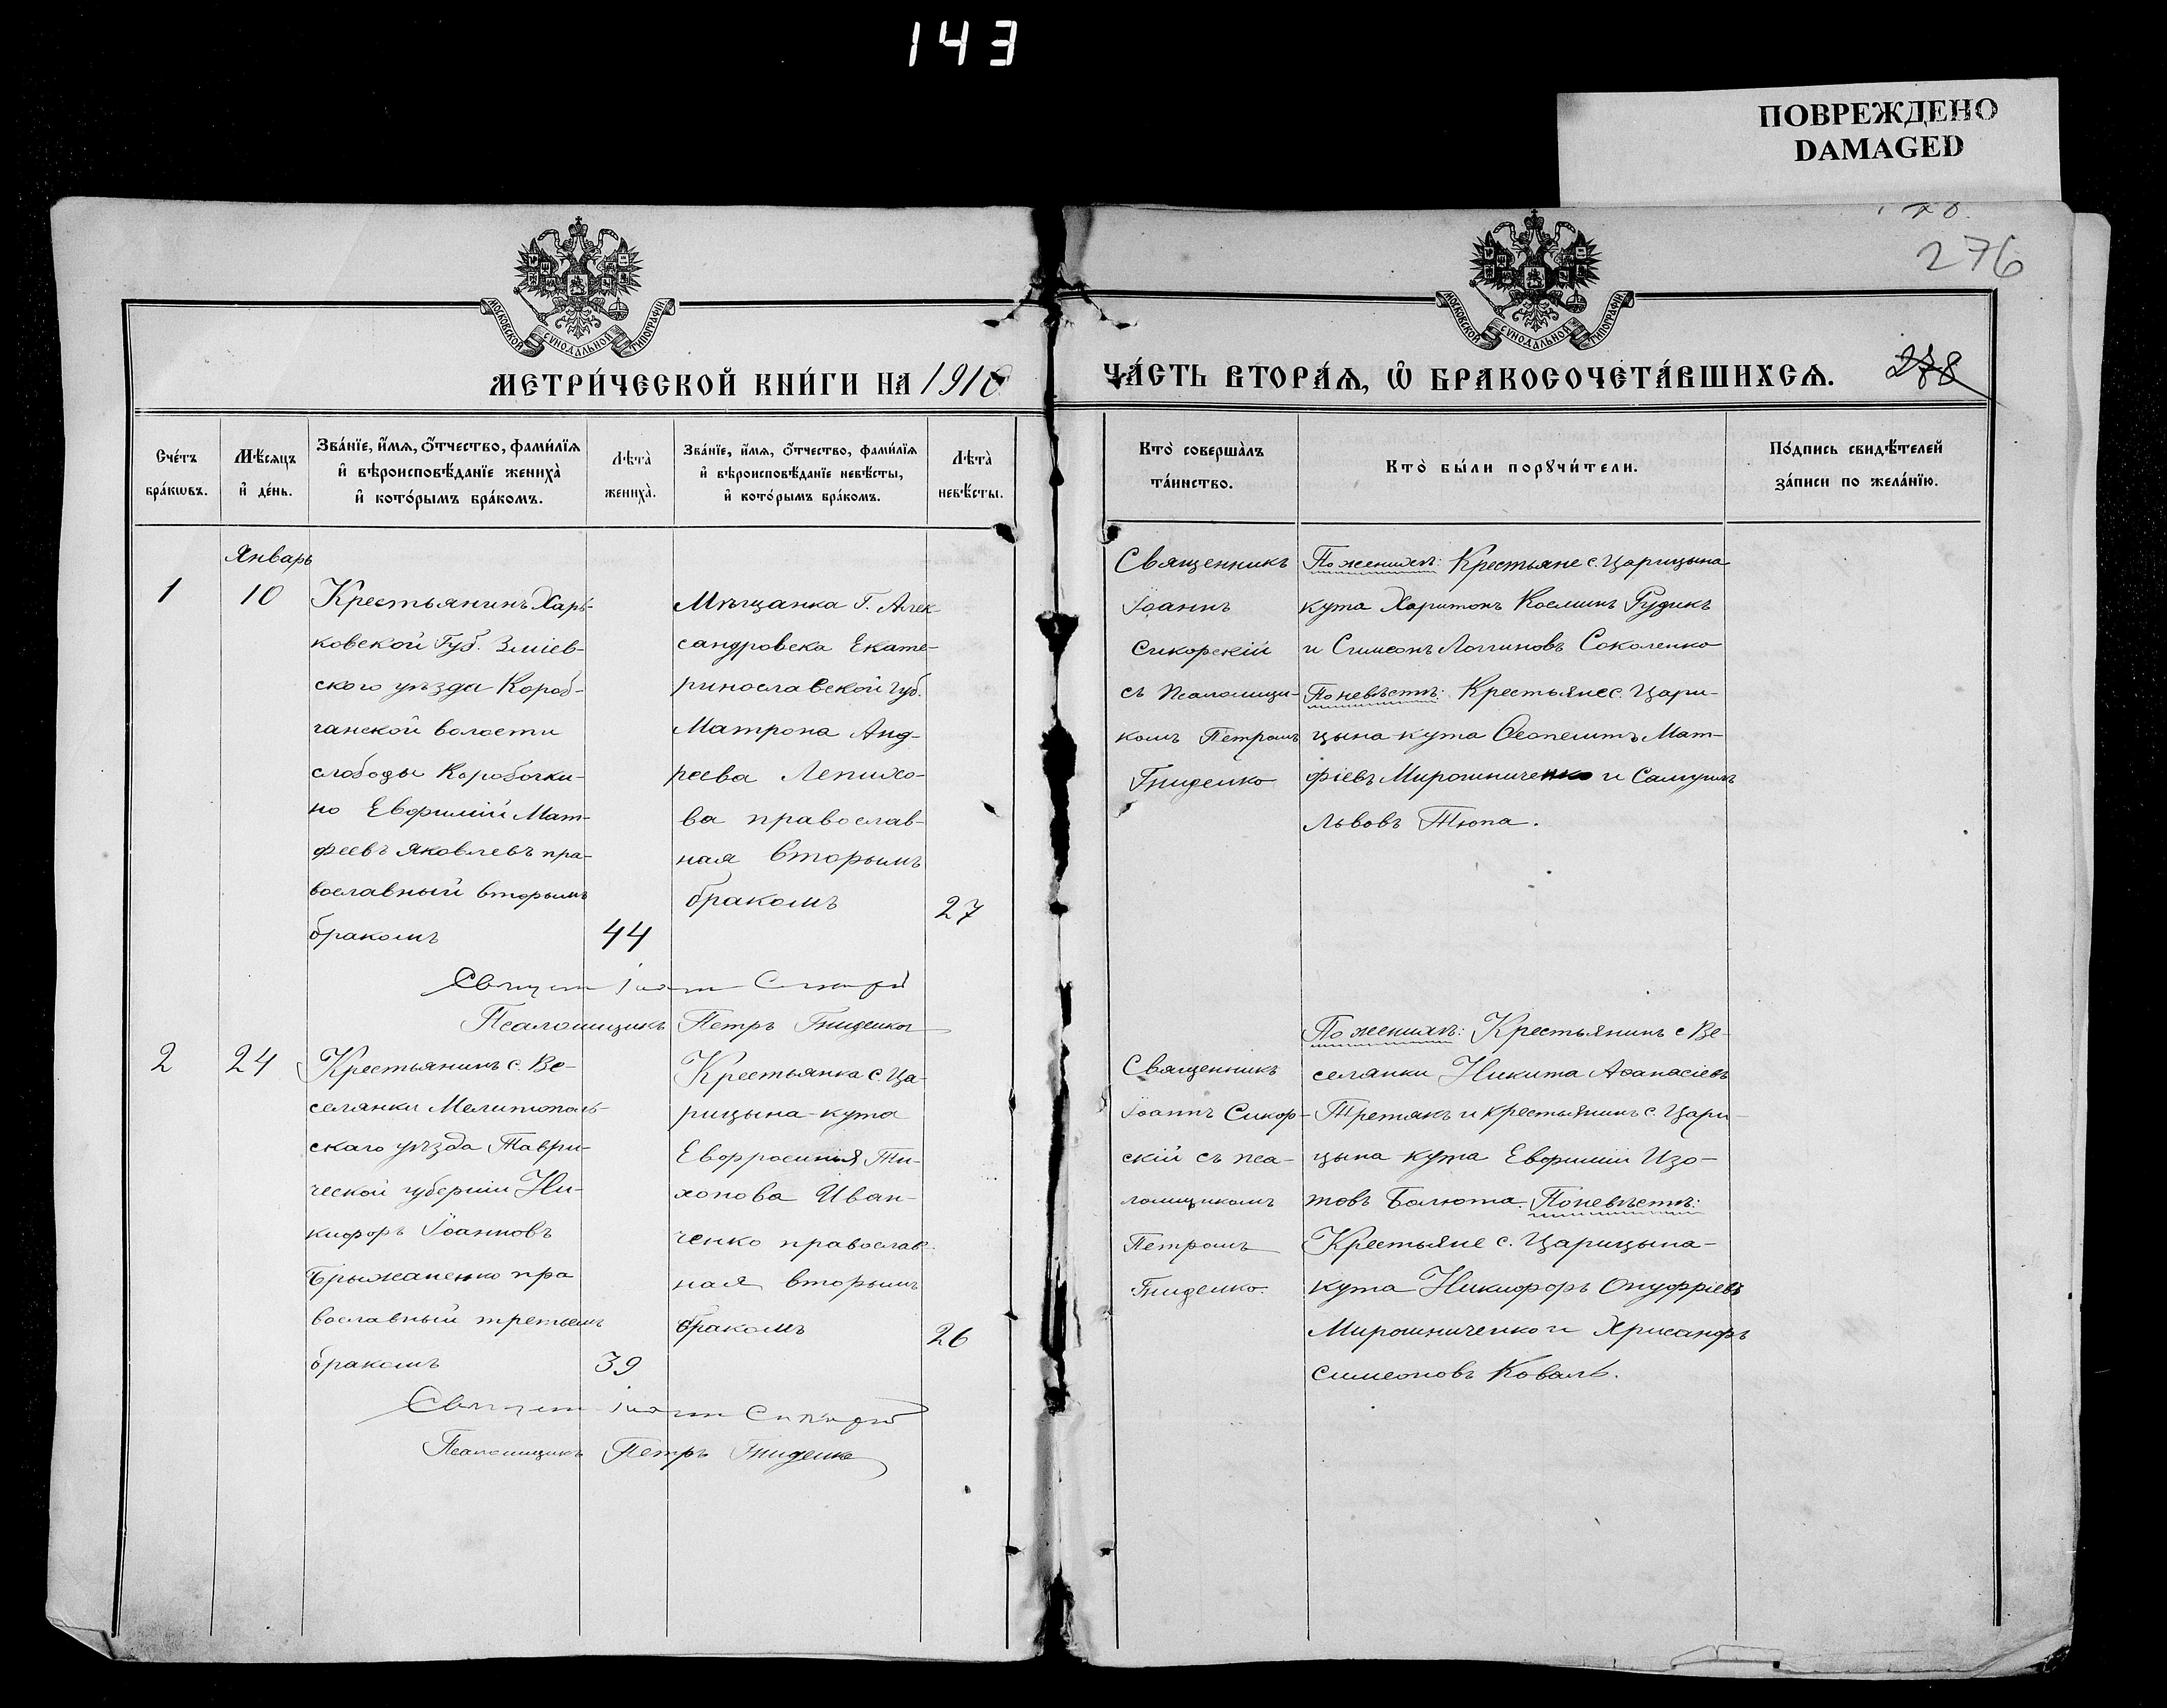 143
ПОВРЕЖДЕНО
DAMAGED
276
МОСКОВСКОЙ СѴНОДАЛЬНОЙ ТИПОГРАФІИ
МОСКОВСКОЙ СѴНОДАЛЬНОЙ ТИПОГРАФІИ
МЕТРИ́ЧЕСКОЙ КНИ́ГИ НА 191
ЧА́СТЬ ВТОРА́Ѧ, Ѡ БРАКОСОЧЕТА́ВШИХСѦ.
288
Сче́тъ бра́кωвъ.
Мѣ́сѧцъ и҆ де́нь.
Зва́нїе, и҆́мѧ, ѻ҆́тчество, фами́лїѧ
и҆ вѣроисповѣ́данїе жениха̀
и҆ кото́рымъ бра́комъ.
Лѣта̀ жениха̀.
Зва́нїе, и҆́мѧ, ѻ҆́тчество, фами́лїѧ
и҆ вѣроисповѣ́данїе невѣ́сты,
и҆ кото́рымъ бра́комъ.
Лѣта̀ невѣ́сты.
Кто̀ соверша̀лъ
та́инство.
Кто̀ бы́ли порꙋчи́тели.
По́дпись свидѣ́телей
за́писи по жела́нїю.
Январь
1
10
Крестьянинъ Харь-
ковской Губ. Зміев-
ского уѣзда Короб-
чанской волости
слободы Коробочки-
но Евфимій Мат-
феевъ Яковлевъ пра-
вославный вторымъ
бракомъ
44
Мѣщанка Г. Алек-
сандровска Екате-
ринославской губ.
Матрона Анд-
реева Лепихо-
ва православ-
ная вторымъ
бракомъ
27
Священникъ
Іоаннъ
Сикорскій
съ псаломщи-
комъ Петромъ
Гниденко
По женихѣ: Крестьяне с. Царицына
кута Харитонъ Косминъ Рудикъ
и Симеонъ Логгиновъ Соколенко
По невѣстѣ: Крестьяне с. Цари-
цына-кута Ѳеопемптъ Мат-
фіевъ Мирошниченко и Самуилъ
Львовъ Тюпа.
Псаломщикъ Петръ Гниденко
2
24
Крестьянинъ с. Ве-
селянки Мелитополь-
скаго уѣзда Таври-
ческой губерніи Ни-
кифоръ Іоанновъ
Брыжаненко пра
вославный третьимъ
бракомъ
39
Крестьянка с. Ца-
рицына-кута
Евфросинія Ти-
хонова Иван-
ченко православ-
ная вторымъ
бракомъ
26
Священникъ
Іоаннъ Сикор-
скій съ пса-
ломщикомъ
Петромъ
Гниденко.
По женихѣ: Крестьянинъ с Ве-
селянки Никита Аѳанасіевъ
Третякъ и крестьянинъ с. Цари-
цына кута Евфимій Изо-
товъ Балюта. По невѣстѣ:
Крестьяне с. Царицына-
кута Никифоръ Онуфріевъ
Мирошниченко и Хрисанфъ
Симеоновъ Коваль.
Псаломщикъ Петръ Гниденко